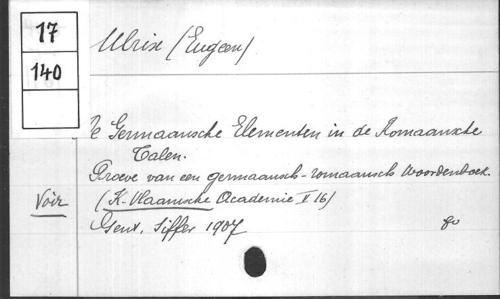 17
140
Ulrix (Eugeen)
De Germaansche Elementen in de Romaansche
Talen.
Proeve van een germaansch-romaansch Woordenboek.
Voir (K. Vlaamsche Academie V 16)
Gent, Siffer 1907 8o